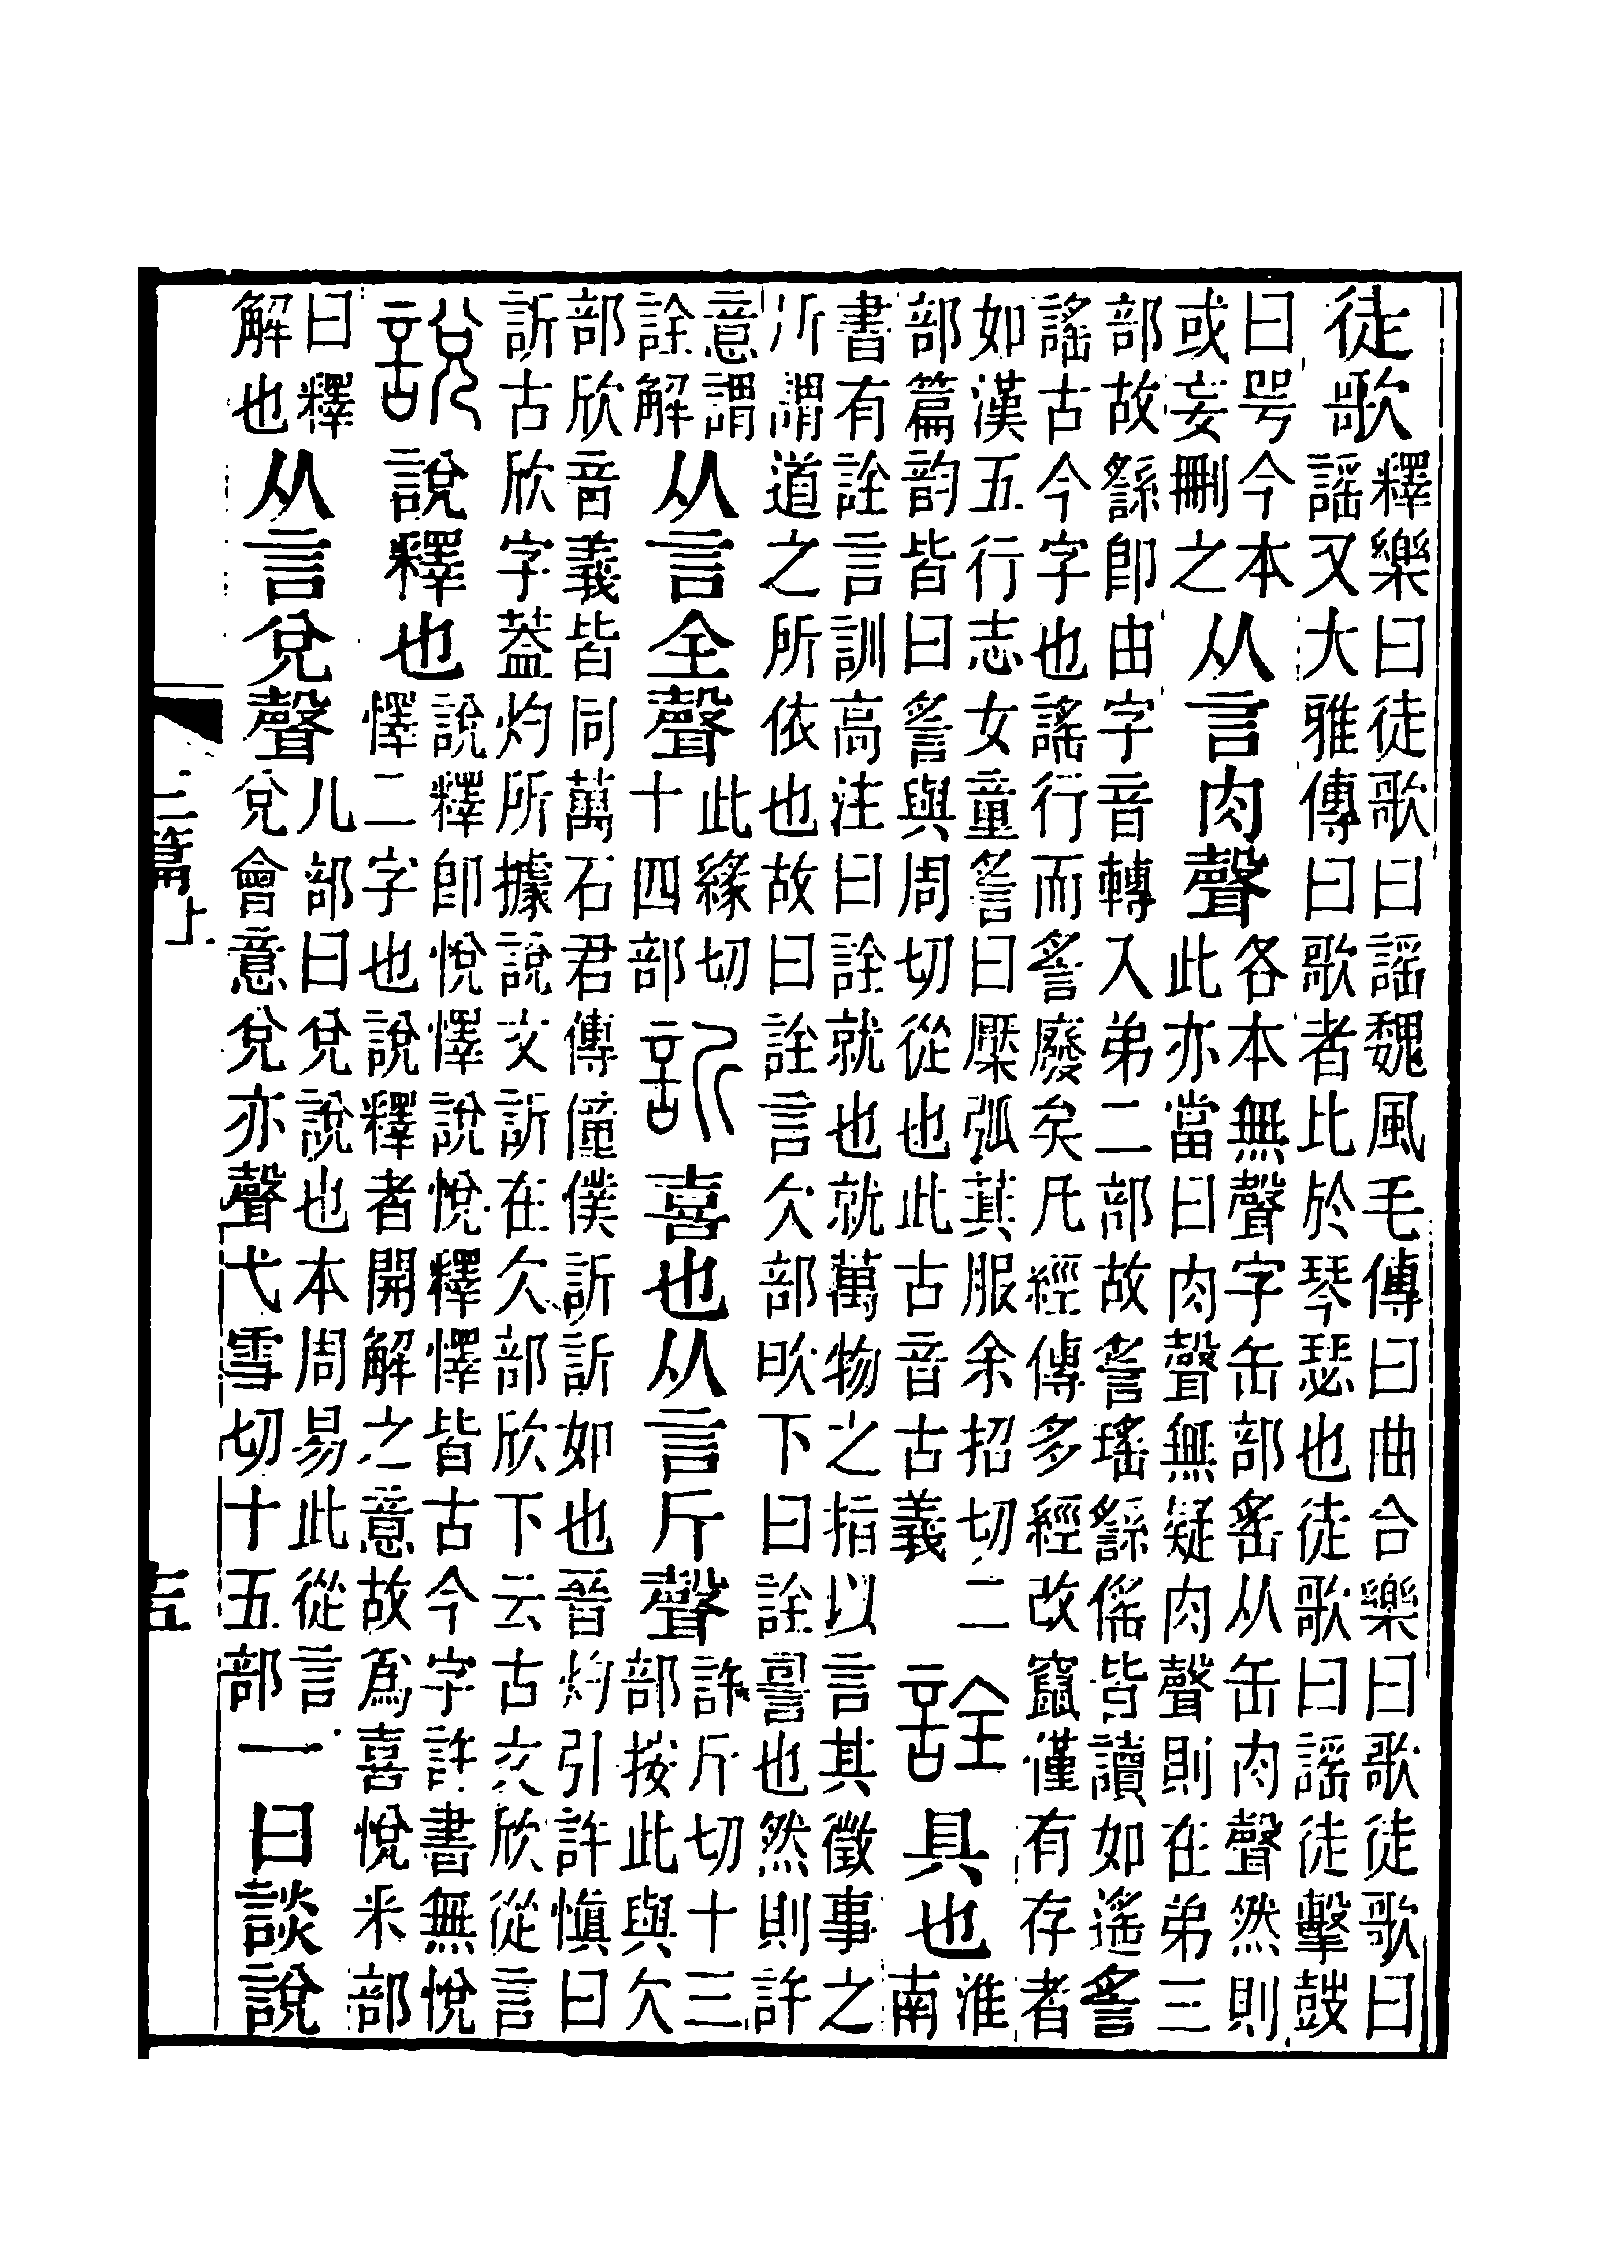 徒歌釋樂曰徒歌曰謠魏風毛傳曰曲合樂曰歌徒歌曰
謠又大雅傳曰歌者比於琴瑟也徒歌曰謠徒擊鼓
曰咢今本
或妄刪之从言肉聲各本無聲字缶部䍃从缶肉聲然則
此亦當曰肉聲無疑肉聲則在弟三
部故䌛卽由字音轉入弟二部故䚻瑤䌛傜皆讀如遙䚻
謠古今字也謠行而䚻廢矣凡經傳多經改竄僅有存者
如漢五行志女童䚻曰檿弧萁服余招切二
部篇韵皆曰䚻與周切從也此古音古義詮具也淮
南
書有詮言訓高注曰詮就也就萬物之指以言其徵事之
所謂道之所依也故曰詮言欠部㰟下曰詮䛐也然則許
意謂
詮解从言全聲此緣切
十四部訢喜也从言斤聲許斤切十三
部按此與欠
部欣音義皆同萬石君傳僮僕訢訢如也晉灼引許愼曰
訢古欣字葢灼所據說文訢在欠部欣下云古文欣從言
說說釋也說釋卽悅懌說悅釋懌皆古今字許書無悅
懌二字也說釋者開解之意故爲喜悅釆部
曰釋
解也从言兌聲儿部曰兌說也本周易此從言
兌會意兌亦聲弋雪切十五部一曰談說
三篇上